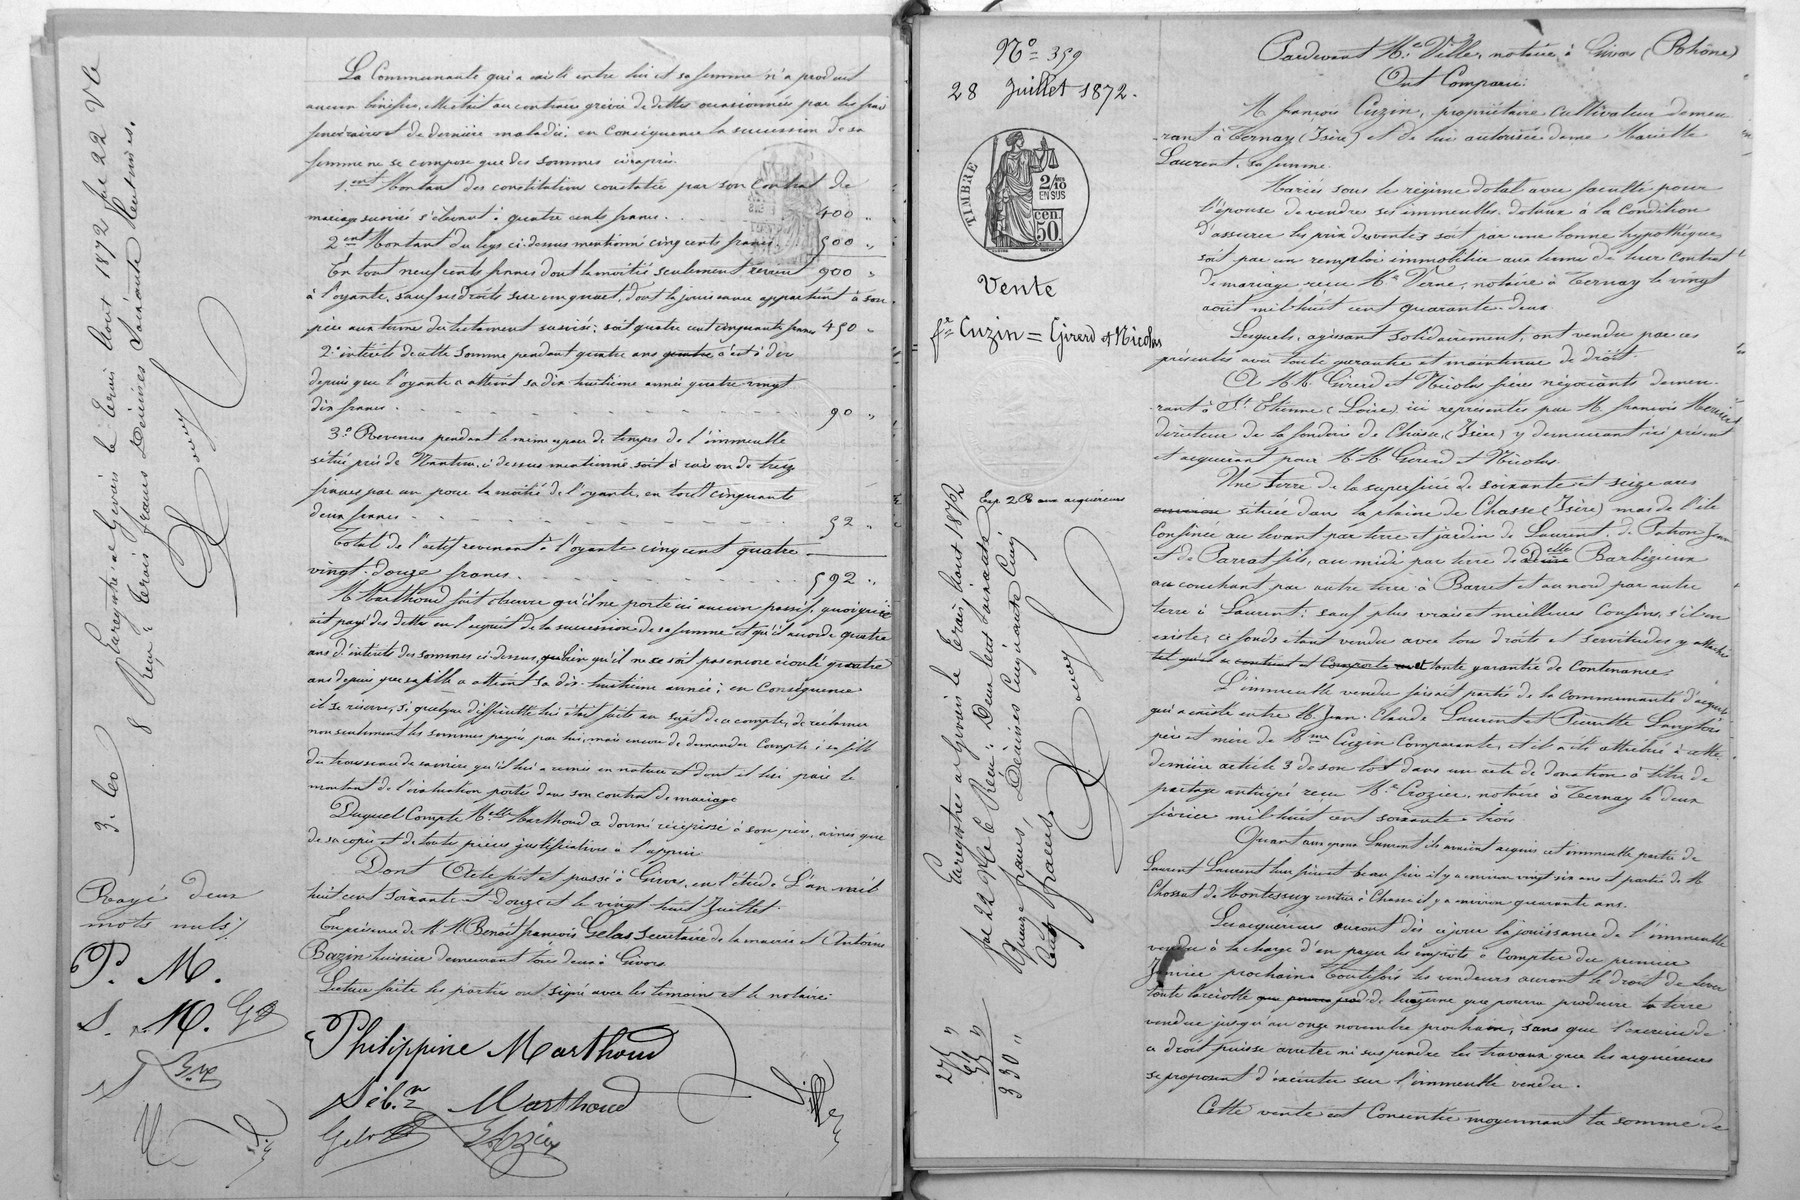 La Communauté qui a existé entre lui et sa femme n'a produit
aucun bénéfice, elle était au contraire grevée de dettes occasionnées par les frais
funéraires et de dernière maladie; en conséquence la succession de sa
femme ne se compose que des sommes ci après.
1ent Montant des constitutions constatées par son Contrat de
mariage susvisé s'élevant à quatre cents francs. 400 "
2ent Montant du legs ci-dessus mentionné cinq cents francs. 500 "
En tout neuf cents francs dont la moitié seulement revient 900 "
à l'oyante, sauf ses droits sur un quart, dont la jouissance appartient à son
père aux termes du testament susvisé; soit quatre cent cinquante francs 450 "
2° intérêts de cette somme pendant quatre ans quatre c'est à dire
depuis que l'oyante a atteint sa dix huitième année quatre vingt
dix francs. 90 "
3° Revenus pendant le même espace de temps de l'immeuble
situé près de Nantua, ci dessus mentionné, soit à raison de treize
francs par an pour la moitié de l'oyante, en tout cinquante
deux francs. 52 "
Total de l'actif revenant à l'oyante cinq cent quatre
vingt-douze francs. 592 "
M. Marthoud fait observer qu'il ne porte ici aucun passif, quoiqu'il
ait payé des dettes en l'acquit de la succession de sa femme et qu'il accorde quatre
ans d'intérêts des sommes ci-dessus, qu'il ne se soit pas encore écoulé quatre
ans depuis que sa fille a atteint sa dix-huitième année; en Conséquence
il se réserve, si quelque difficulté lui était faite au sujet de ce compte, de réclamer
non seulement les sommes payées par lui, mais encore de demander Compte à sa fille
du trousseau de sa mère qu'il lui a remis en nature et dont il lui paie le
montant de l'évaluation porté dans son contrat de mariage
Duquel Compte Melle Marthoud a donné récépissé à son père, ainsi que
de sa copie et de toutes pièces justificatives à l'appui
Dont Acte fait et passé à Givors, en l'étude L'an mil
huit cent soixante et douze et le vingt huit Juillet.
En présence de MM Benoît françois Gelas Secrétaire de la mairie et Antoine
Bazin huissier demeurant tous deux à Givors.
Lecture faite les parties ont signé avec les témoins et le notaire.
Philippine Marthoud
Séb.n Marthoud
Gelas Bazin
Ville
Enregistré à Givors le trois Août 1872 fol 22 Vo C
8 Reçu: trois francs Décimes Soixante Centimes.
Rouy
3. leo
Rayé deux
mots nuls /
P. M.
S. M. G
B
N° 359
28 Juillet 1872.
TIMBRE
2/10 EN SUS
50 cen
Vente
fe Cuzin = Girerd et Nicolas
Exp. 2 R aux acquéreurs
Enregistré à Givors le trois Août 1872
fol 22 Vo C Reçu: Deux cent soixante
quinze francs, Décimes Cinquante Cinq
francs
Rouy
275 "
55 "
330 "
Pardevant Me Ville, notaire à Givors (Rhône)
Ont Comparu:
M. françois Cuzin, propriétaire Cultivateur demeu
rant à Ternay (Isère) et de lui autorisée dame Mariette
Laurent, sa femme.
Mariés sous le régime dotal avec faculté pour
l'épouse de vendre ses immeubles dotaux à la Condition
d'assurer les prix de ventes soit par une bonne hypothèque,
soit par un remploi immobilier aux termes de leur Contrat
de mariage reçu Me Verne, notaire à Ternay le vingt
août mil huit cent quarante-deux
Lesquels, agissant solidairement, ont vendu par ces
présentes avec toute garantie et maintenue de droit.
A MM. Girerd et Nicolas frères négociants demeu-
rant à St Etienne (Loire) ici représentés par M. françois
directeur de la fonderie de Chasse (Isère) y demeurant ici présent
et acquérant pour MM. Girerd et Nicolas.
Une terre de la superficie de soixante et seize ares
environ située dans la plaine de Chasse (Isère) mas de l'île
Confinée au levant par terre et jardin de Laurent, de Jean
et de Parrat fils, au midi par terre de Delle Barbézieux
au couchant par autre terre à Barret et au nord par autre
terre à Laurent; sauf plus vrais et meilleurs Confins, s'il en
existe; ce fonds étant vendu avec tous droits et servitudes y attachés
tel qu'il se contient et Comporte toute garantie de Contenance.
L'immeuble vendu faisait partie de la Communauté d'acquêts
qui a existé entre M. Jean-Claude Laurent et Pierrette
père et mère de Mme Cuzin Comparante, et il a été attribué à cette
dernière article 3 de son lot dans un acte de donation à titre de
partage anticipé reçu Me Crozier, notaire à Ternay le deux
février mil huit cent soixante-trois
Quant aux époux Laurent ils avaient acquis cet immeuble partie de
Laurent Laurent leur frère et beau frère il y a environ vingt six ans et partie de M.
Chossat de Montessuy rentier à Chasse il y a environ quarante ans.
Les acquéreurs auront dès ce jour la jouissance de l'immeuble
vendu à la charge d'en payer les impôts à Compter du premier
Janvier prochain. Toutefois les vendeurs auront le droit de lever
toute la récolte de luzerne que pourra produire la terre
vendue jusqu'au onze novembre prochain, sans que l'exercice de
ce droit puisse arrêter ni suspendre les travaux que les acquéreurs
se proposent d'exécuter sur l'immeuble vendu.
Cette vente est Consentie moyennant la somme de